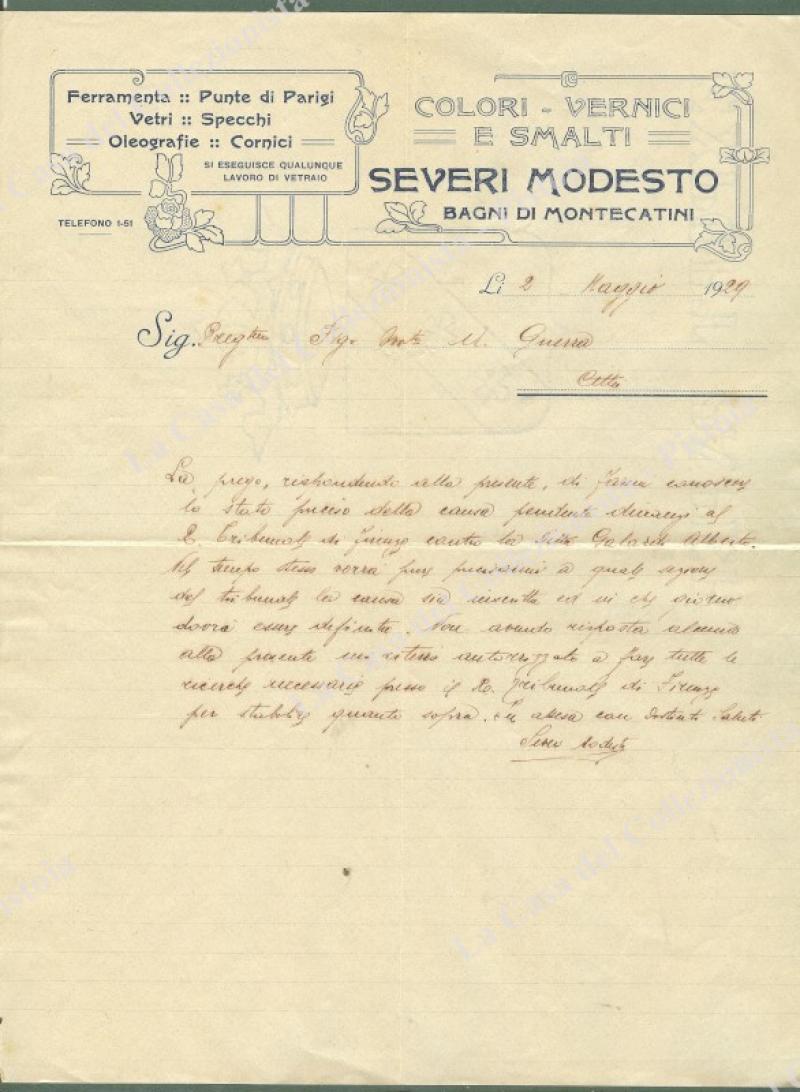 Ferramenta :: Punte di Parigi
Vetri :: Specchi
Oleografie :: Cornici
SI ESEGUISCE QUALUNQUE
LAVORO DI VETRAIO
TELEFONO 1-51
COLORI - VERNICI
E SMALTI
SEVERI MODESTO
BAGNI DI MONTECATINI
Li 2 Maggio 1929
Sig. M. Guerra
Città
La prego, rispondendo alla presente, di farmi conoscere
lo stato preciso della causa pendente dinanzi al
R. Tribunale di Firenze contro la Ditta Alberto.
Nel tempo stesso vorrà pure precisarmi a quale sezione
del tribunale la causa sia inscritta ed in che giorno
dovrà essere definita. Non avendo risposta alcuna
alla presente mi ritengo autorizzato a fare tutte le
ricerche necessarie presso il R. Tribunale di Firenze
per stabilire quanto sopra. In attesa con distinti Saluti
Severi Modesto
La Casa del Collezionista
Pistoia